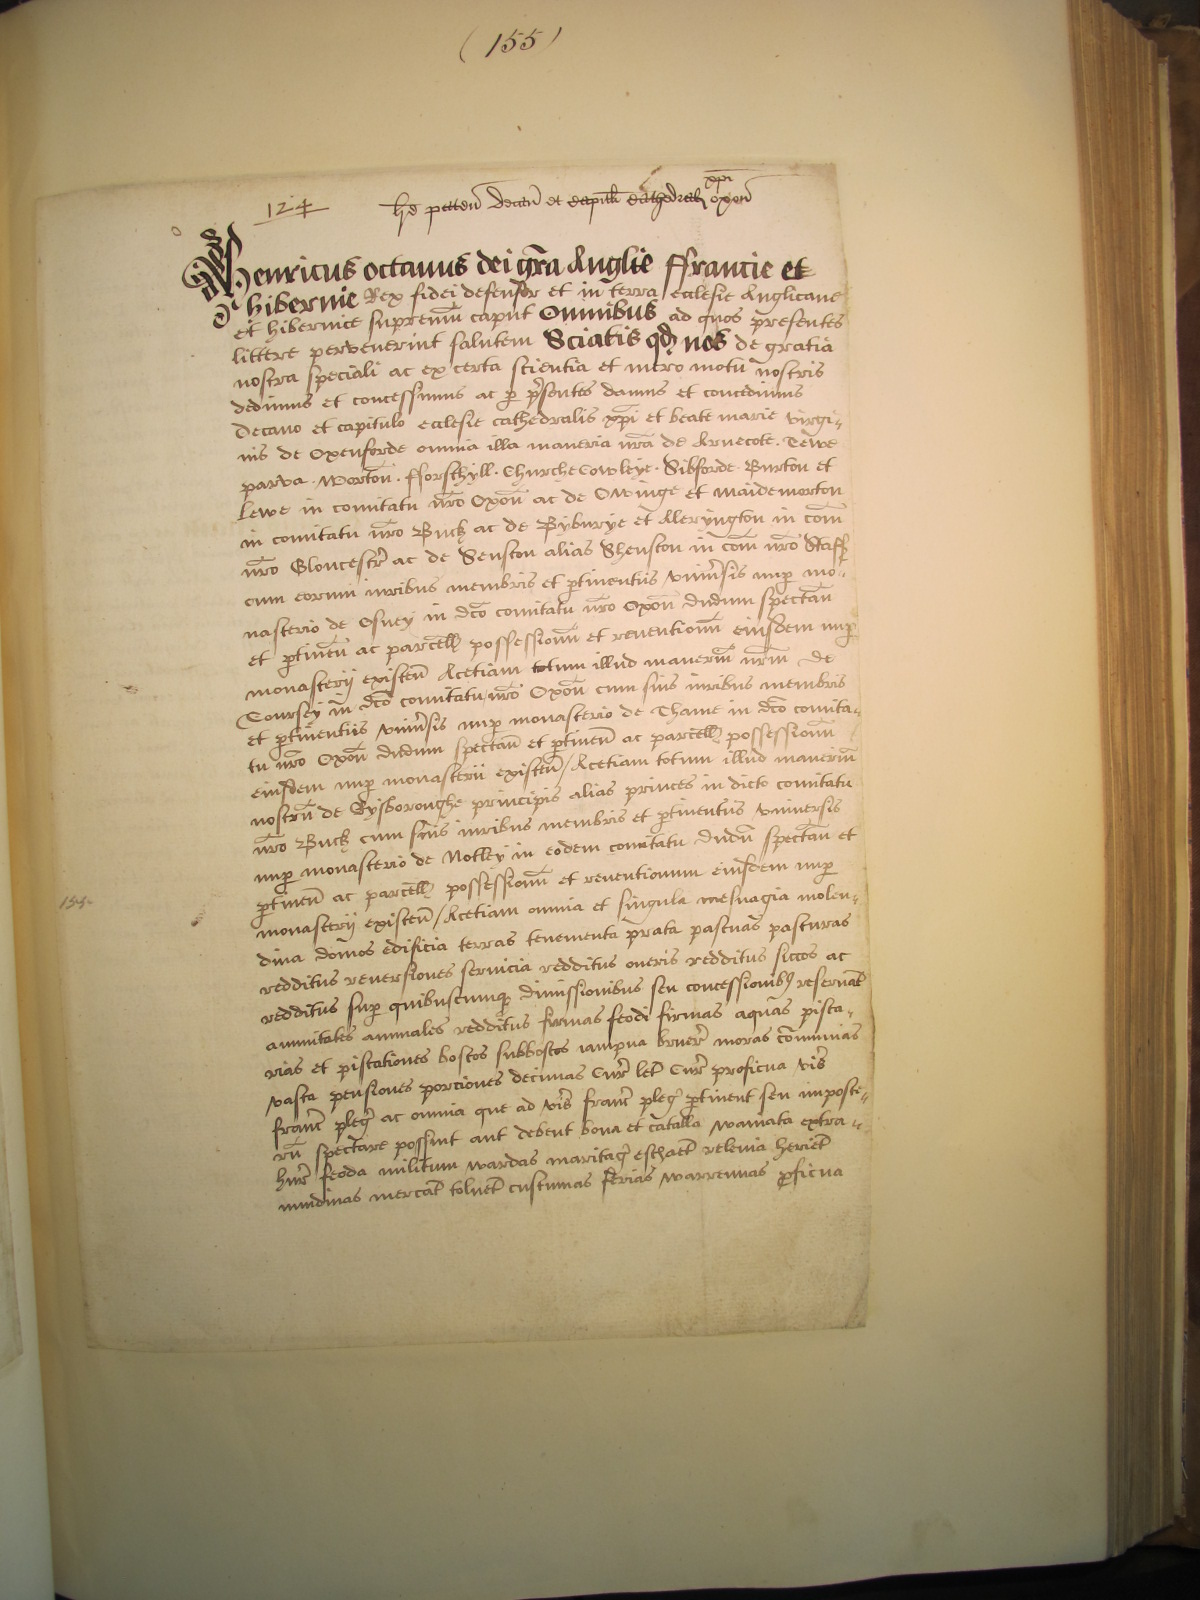 (155)
124
xpi
lre paten Decan et capitli Cathedral Oxon
Henricus octauus dei gra Anglie ffrancie et
hibernie Rex fidei defensor et in terra ecclesie Anglicane
et hibernice supremum caput Omnibus ad quos presentes
littere pervenerint salutem Sciatis qd nos de gratia
nostra speciali ac ex certa scientia et mero motu nostris
dedimus et concessimus ac p psentes damus et concedimus
Decano et capitulo ecclesie cathedralis xpi et beate marie virgi-
nis de Oxenforde omnia illa maneria nra de Arnecote. Tewe
parva. Worton. fforsthyll. Churche Cowleye. Sibforde. Burton et
Lewe in comitatu nro Oxon ac de Owinge et Maidemorton
in comitatu nro Buck ac de Byburye et Aleryngton in com
nro Gloucestr ac de Senston alias Shenston in com nro Staff
cum eorum iuribus membris et ptinentiis vniusis nup mo-
nasterio de Osney in dco comitatu nro Oxon dudum spectan
et ptinen ac parcell possessionu et reuentionu eiusdem nup
monasterij existen Acetiam totum illud maneriu nrm de
Toursey in dco comitatu nro Oxon cum suis iuribus membris
et ptinentiis vniusis nup monasterio de Thame in dco comita-
tu nro Oxon dudum spectan et ptinen ac parcell possessionu
eiusdem nup monasterii existen / Acetiam totum illud maneriu
nostru de Rysboroughe principis alias princes in dicto comitatu
nro Buck cum suis iuribus membris et ptinentiis vniuersis
nup monasterio de Notley in eodem comitatu dudu spectan et
ptinen ac parcell possessionu et reuentionum eiusdem nup
155
monasterij existen / Acetiam omnia et singula mesuagia molen-
dina domos edificia terras tenementa prata pascuas pasturas
redditus reuersiones seruicia redditus oneris redditus siccos ac
redditus sup quibuscumq dimissionibus seu concessionib reseruat
annuitates annuales redditus firmas feodi firmas aquas pisca-
rias et piscationes boscos subboscos iampna bruer moras communas
vasta pensiones porciones decimas Cur let Cur proficua vis
franc pleg ac omnia que ad vis franc pleg ptinent seu imposte-
ru spectare possint aut debent bona et catalla waiuata extra-
hur feoda militum wardas maritag eschaet releuia heriet
nundinas mercat tolnet custumas ferias warrennas pficua